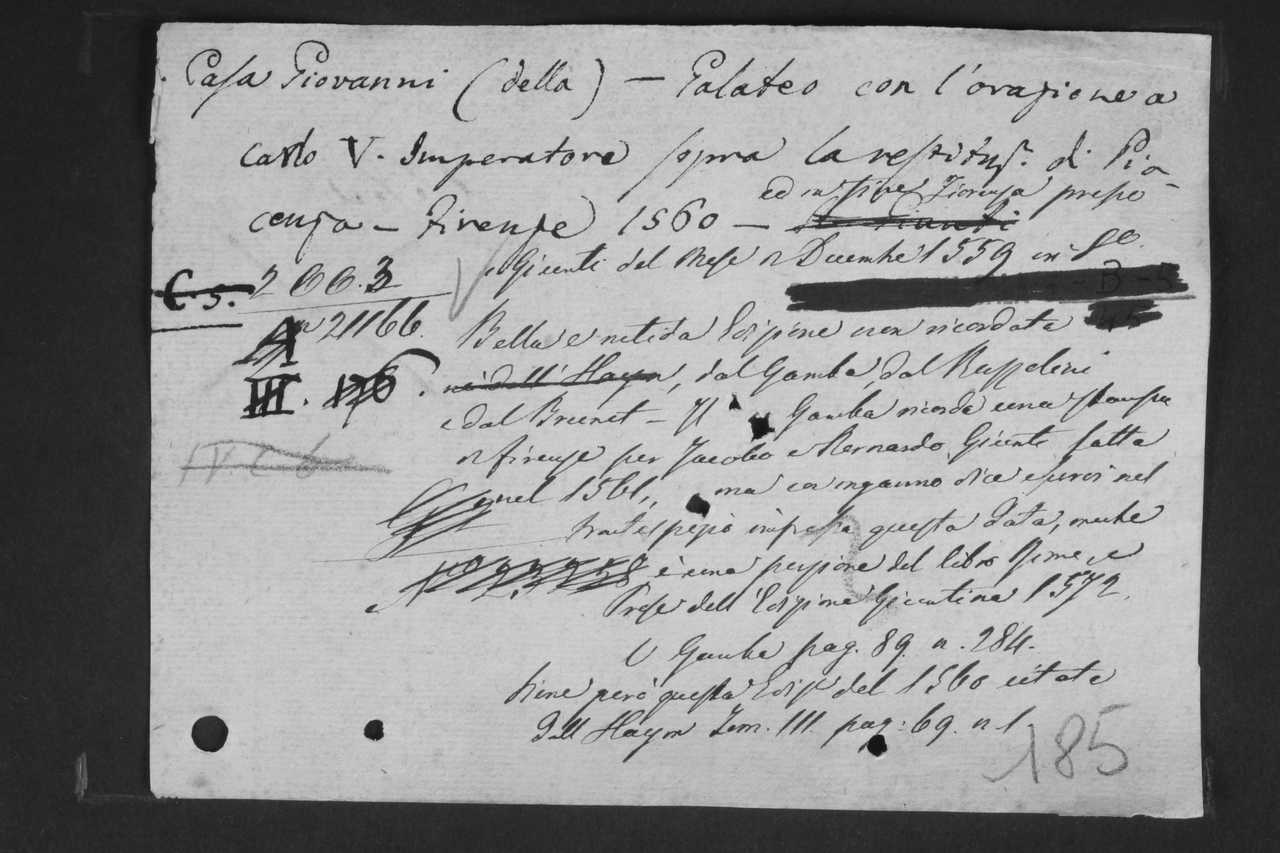 Casa Giovanni (della) — Galateo con l'orazione a
Carlo V. Imperatore sopra la restituz. di Pia-
cenza — Firenze 1560 —
ed in fine Fiorenza presso
i Giunti del Mese a Dicembre 1559 in 8º
C. 5. 2663
A 21166.
III. 176.
IV. C 6
Bella e nitida Edizione non ricordata
nè dall'Haym, dal Gamba, dal Razzolini
e dal Brunet — Il Gamba ricorda una stampa
a firenze per Jacobo e Bernardo Giunti fatta
nel 1561, ma con inganno dice esservi nel
frontespizio impressa questa data, mentre
è una porzione del libro Rime e
Prose dell'Edizione Giuntina 1572.
V Gamba pag. 89. n. 284.
però questa Ediz. del 1560 citata
dall Haym Tom. III. pag: 69. n 1
185